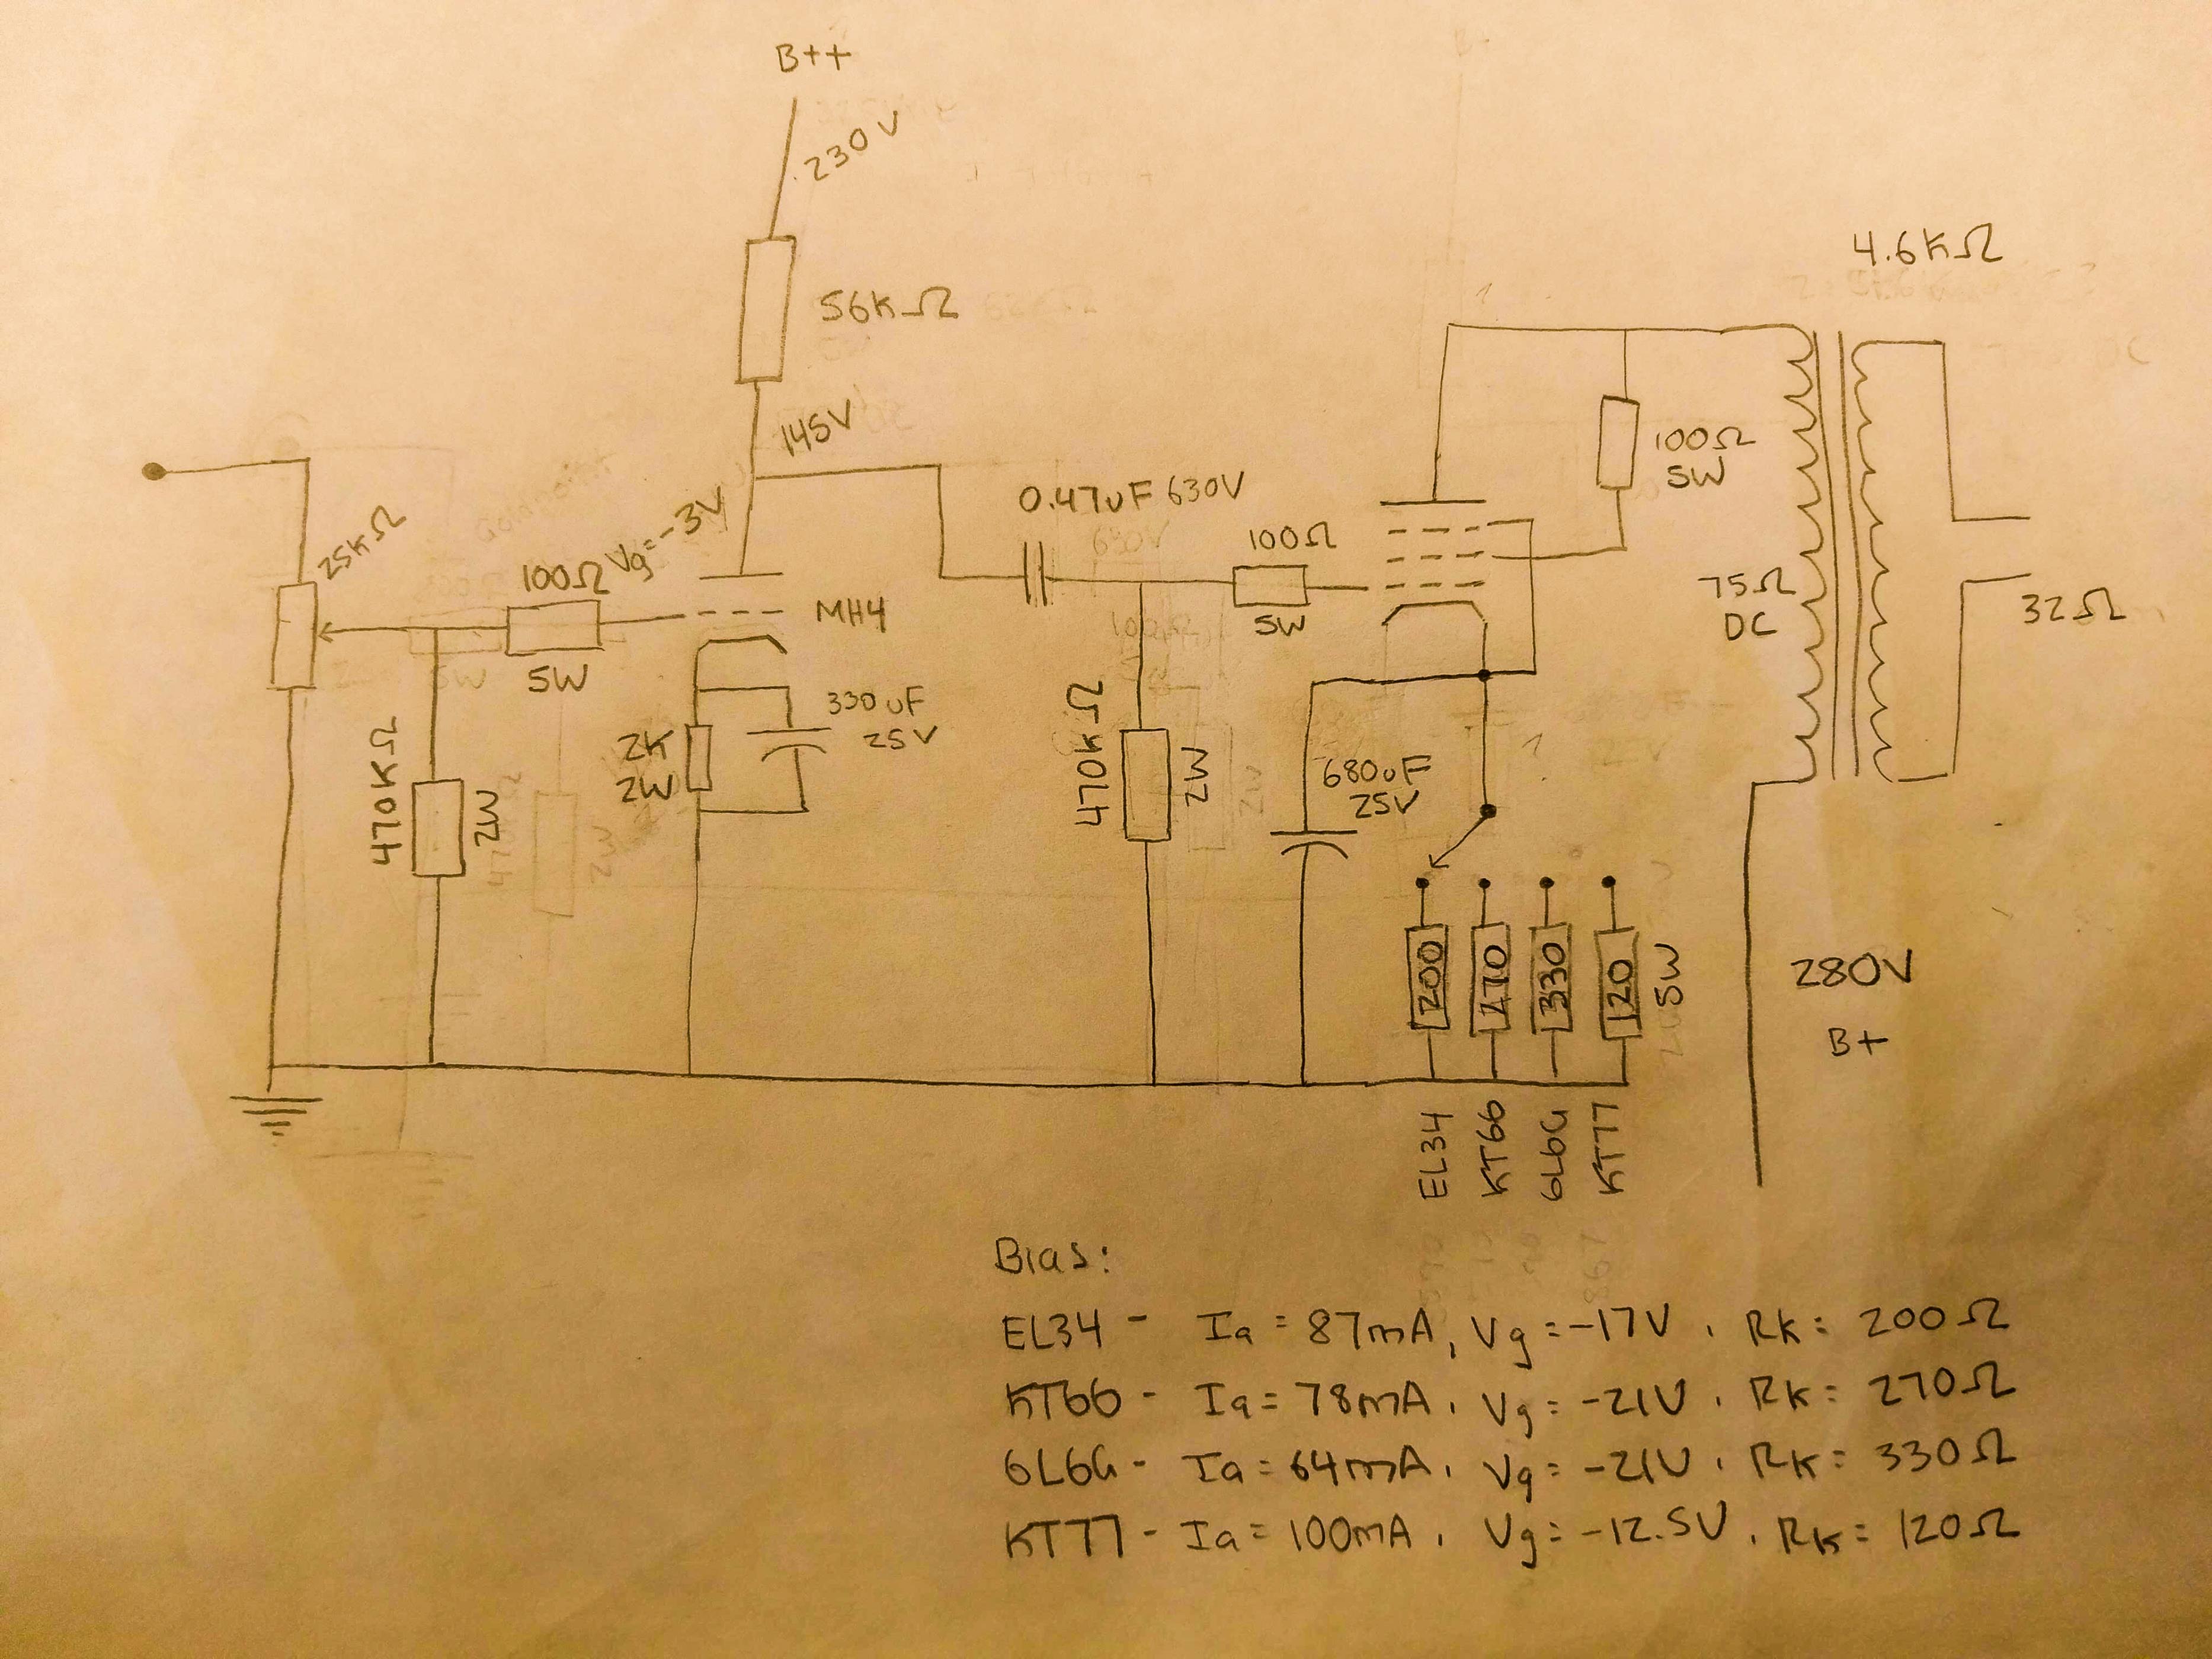 B++
230V
56KΩ
4.6KΩ
145V
25KΩ
100Ω
5W
Vg=-3V
MH4
0.47uF 630V
100Ω
5W
100Ω
5W
75Ω
DC
32Ω
470KΩ
2W
2K
2W
330uF
25V
470KΩ
2W
680uF
25V
200
270
330
120
5W
280V
B+
EL34
KT66
6L6G
KT77
Bias:
EL34 - Ia = 87mA, Vg = -17V, RK = 200Ω
KT66 - Ia = 78mA, Vg = -21V, RK = 270Ω
6L6G - Ia = 64mA, Vg = -21V, RK = 330Ω
KT77 - Ia = 100mA, Vg = -12.5V, RK = 120Ω